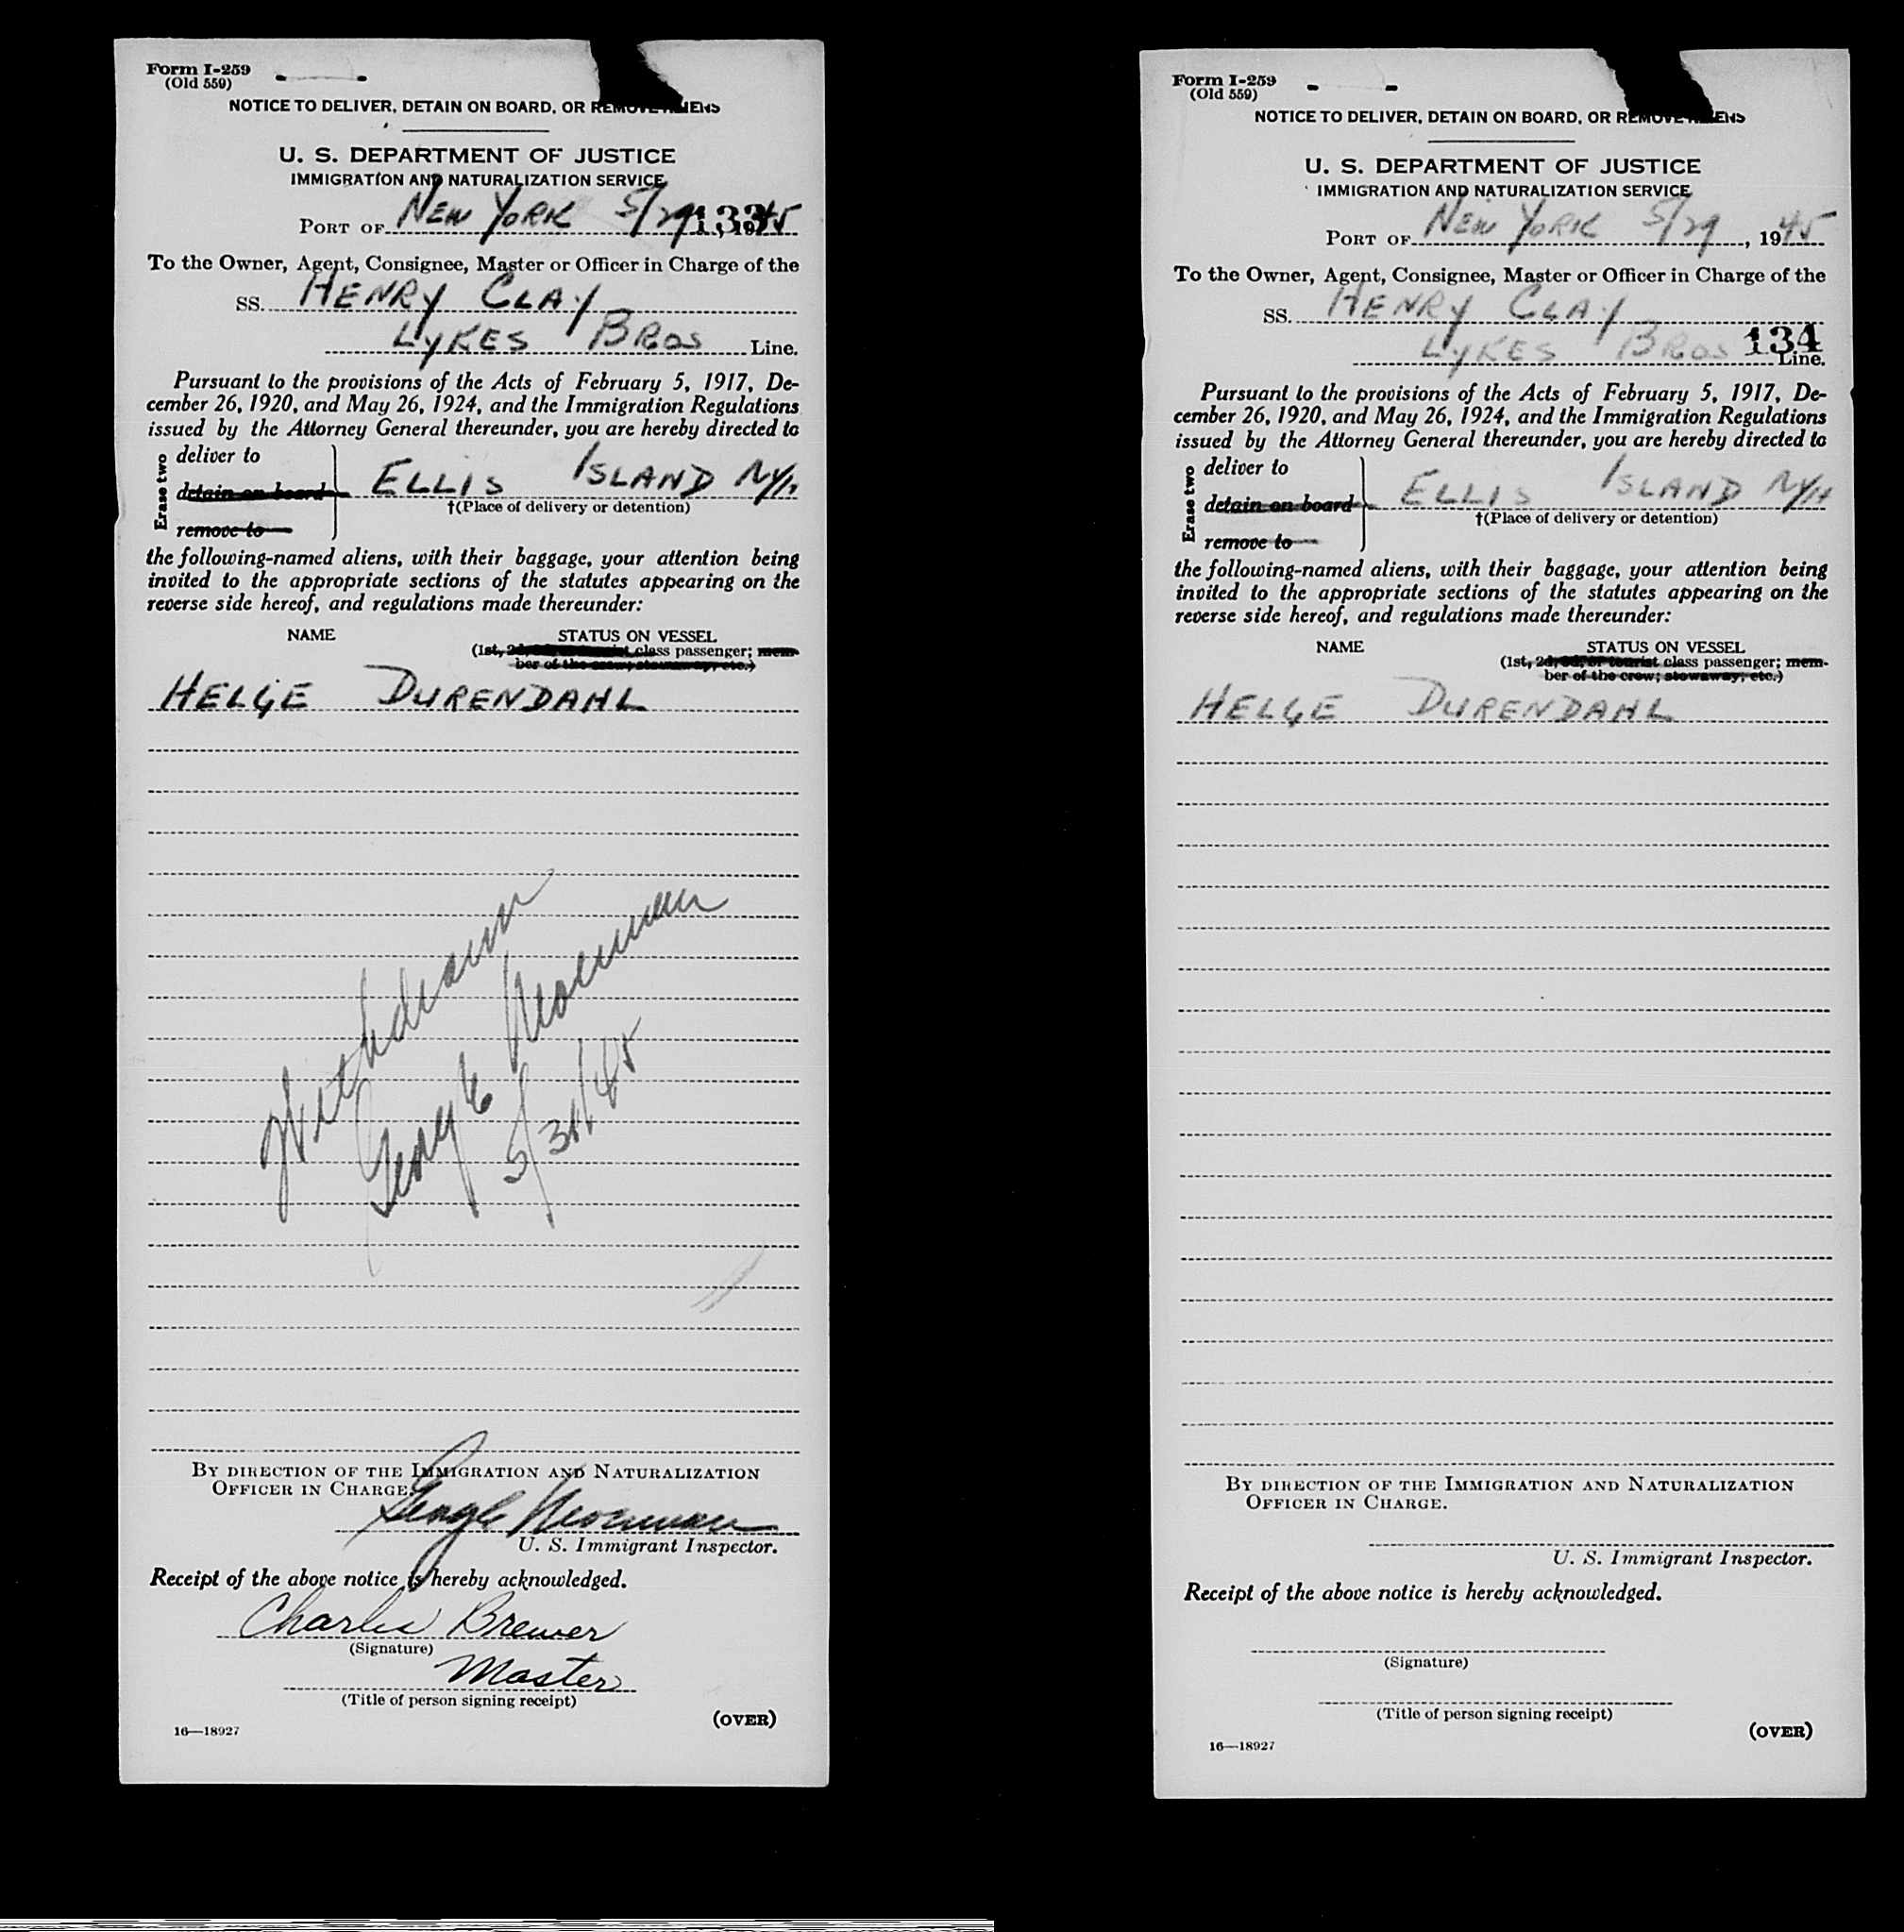 Form I-259
(Old 559)
NOTICE TO DELIVER, DETAIN ON BOARD, OR REMOVE ALIENS
U. S. DEPARTMENT OF JUSTICE
IMMIGRATION AND NATURALIZATION SERVICE
PORT OF NEW YORK 5/29, 1945
133
To the Owner, Agent, Consignee, Master or Officer in Charge of the
SS. HENRY CLAY
LYKES BROS Line.
Pursuant to the provisions of the Acts of February 5, 1917, De-
cember 26, 1920, and May 26, 1924, and the Immigration Regulations
issued by the Attorney General thereunder, you are hereby directed to
Erase two
deliver to
detain on board
remove to
ELLIS ISLAND NYH
†(Place of delivery or detention)
the following-named aliens, with their baggage, your attention being
invited to the appropriate sections of the statutes appearing on the
reverse side hereof, and regulations made thereunder:
NAME STATUS ON VESSEL
(1st, 2d, 3d, or tourist class passenger; mem-
ber of the crew; stowaway, etc.)
HELGE DURENDAHL
Withdrawn
5/31/45
BY DIRECTION OF THE IMMIGRATION AND NATURALIZATION
OFFICER IN CHARGE.
U. S. Immigrant Inspector.
Receipt of the above notice is hereby acknowledged.
Charles Brewer
(Signature)
Master
(Title of person signing receipt)
(OVER)
16—18927
Form I-259
(Old 559)
NOTICE TO DELIVER, DETAIN ON BOARD, OR REMOVE ALIENS
U. S. DEPARTMENT OF JUSTICE
IMMIGRATION AND NATURALIZATION SERVICE
PORT OF NEW YORK 5/29, 1945
To the Owner, Agent, Consignee, Master or Officer in Charge of the
SS. HENRY CLAY
134
LYKES BROS Line.
Pursuant to the provisions of the Acts of February 5, 1917, De-
cember 26, 1920, and May 26, 1924, and the Immigration Regulations
issued by the Attorney General thereunder, you are hereby directed to
Erase two
deliver to
detain on board
remove to
ELLIS ISLAND NYH
†(Place of delivery or detention)
the following-named aliens, with their baggage, your attention being
invited to the appropriate sections of the statutes appearing on the
reverse side hereof, and regulations made thereunder:
NAME STATUS ON VESSEL
(1st, 2d, 3d, or tourist class passenger; mem-
ber of the crew; stowaway, etc.)
HELGE DURENDAHL
BY DIRECTION OF THE IMMIGRATION AND NATURALIZATION
OFFICER IN CHARGE.
U. S. Immigrant Inspector.
Receipt of the above notice is hereby acknowledged.
(Signature)
(Title of person signing receipt)
(OVER)
16—18927